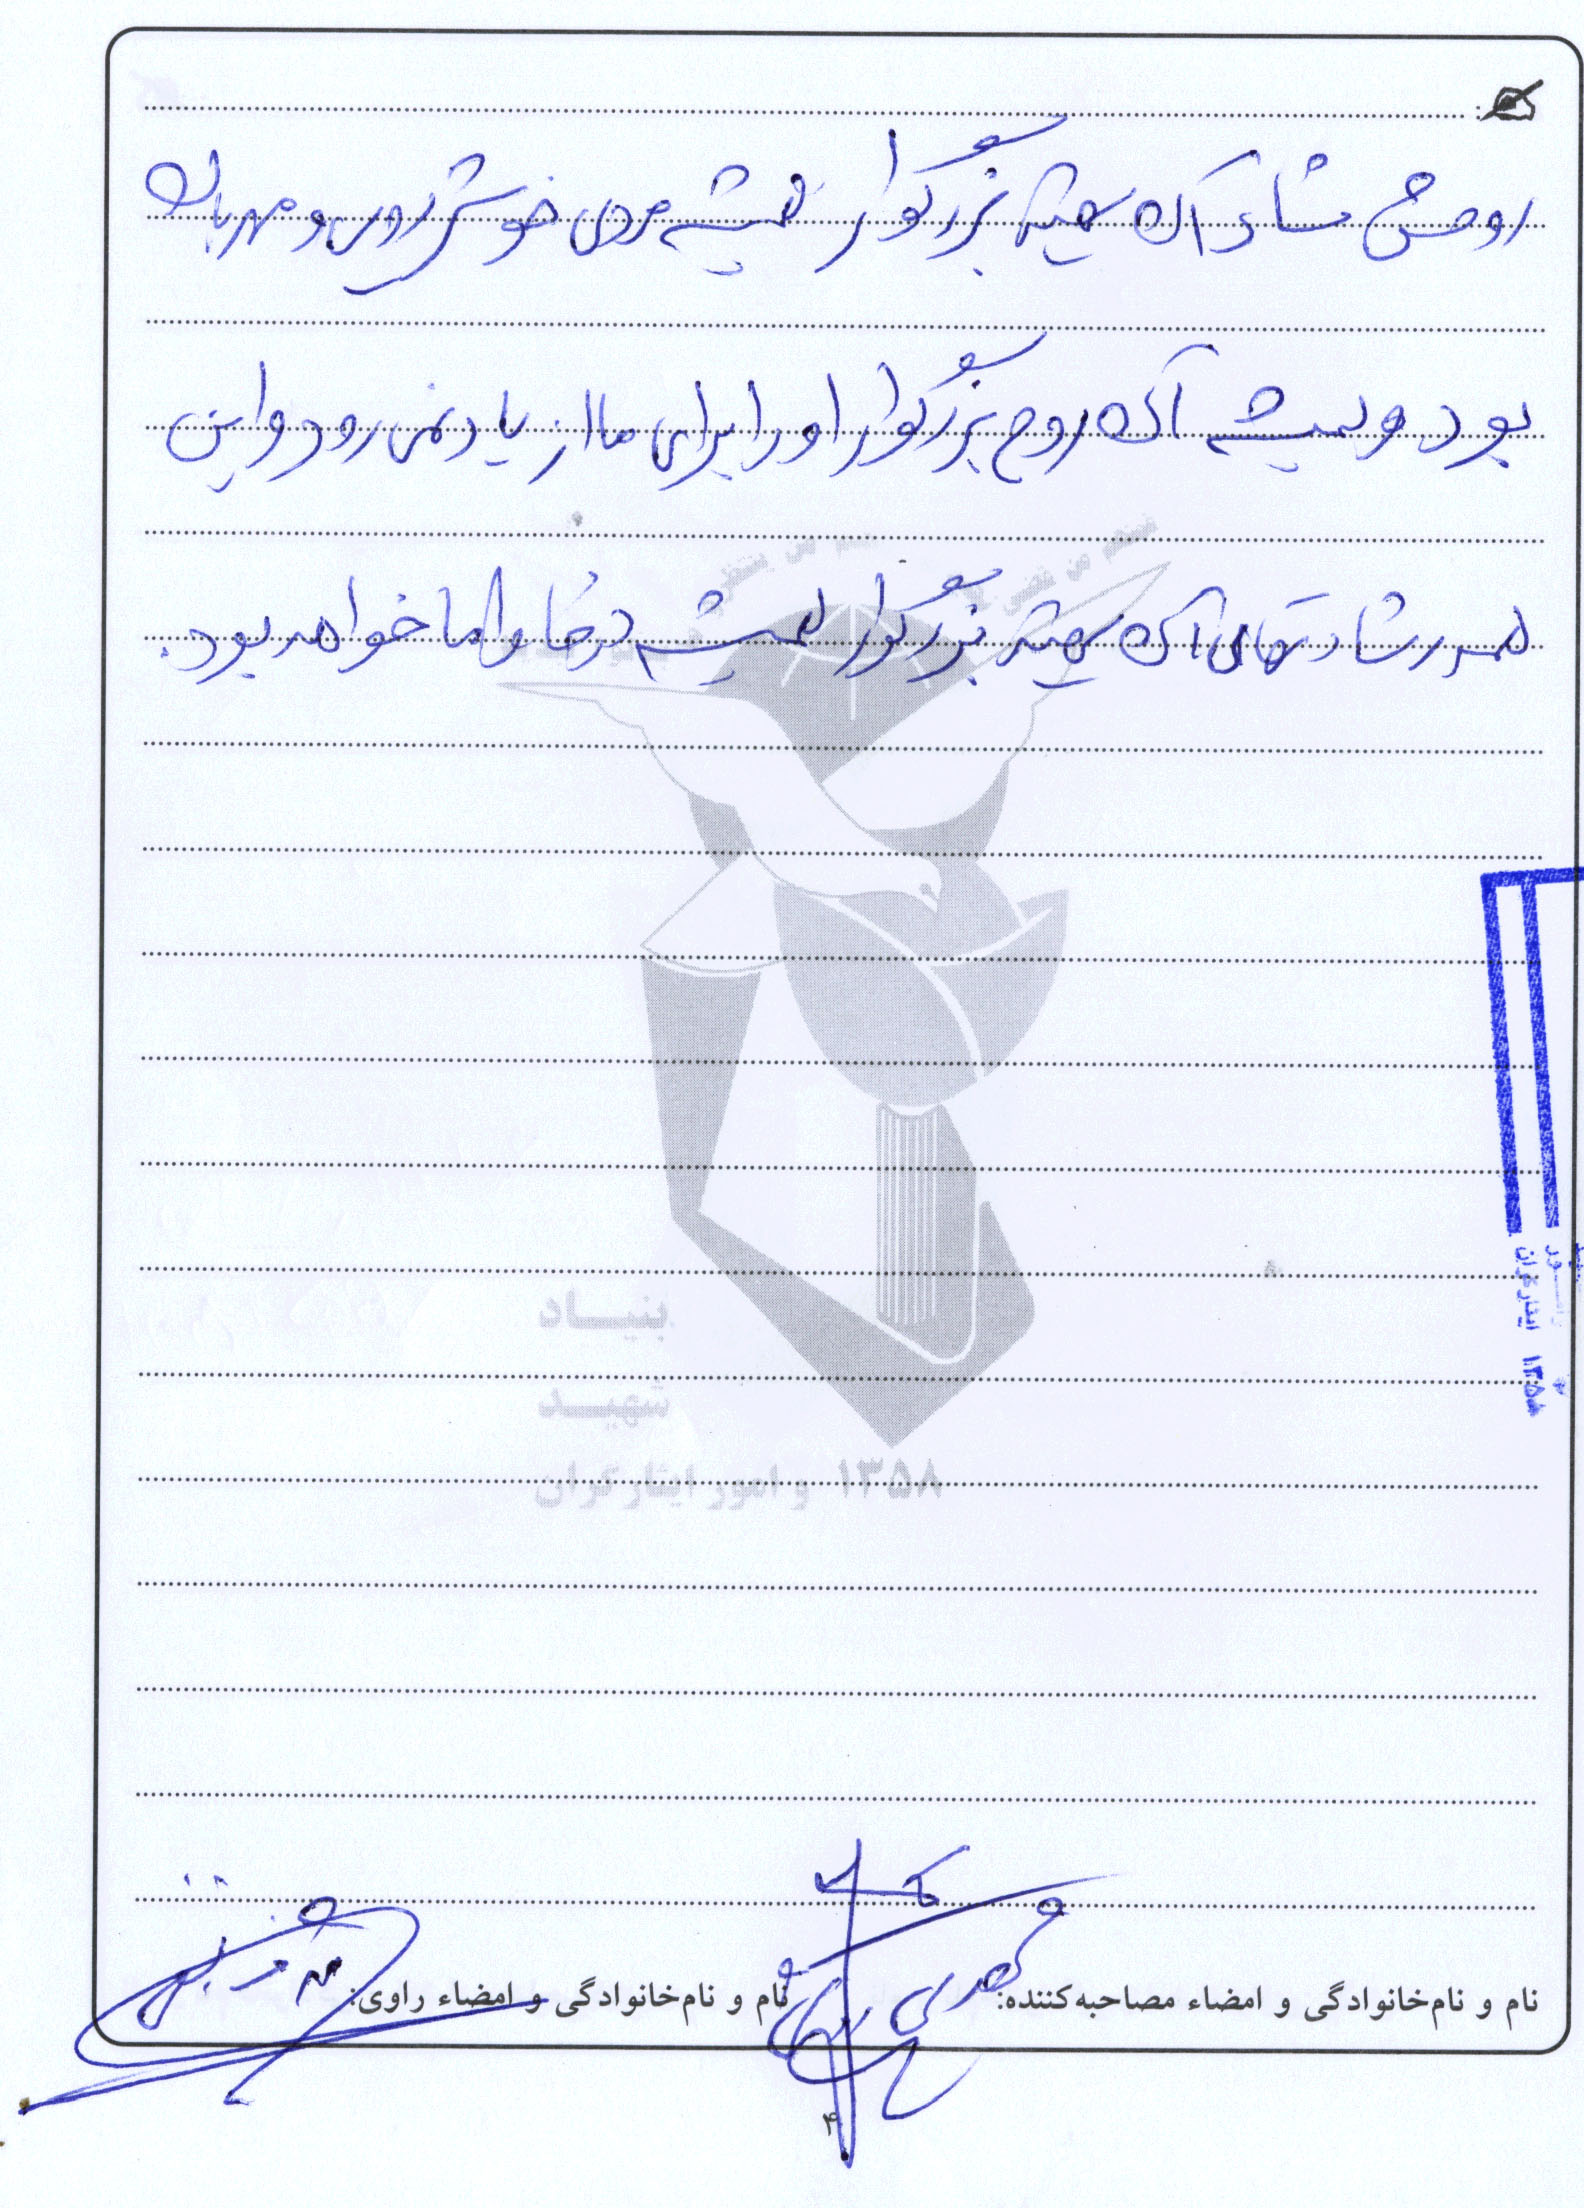 روحش شاد آن شهید بزرگوار همیشه مردی خوش روی و مهربان
بود و همیشه آن روح بزرگوار او را برای ما از یاد نمی رود و این
همه رشادتهای آن شهید بزرگوار همیشه در خاطر ما خواهد بود.
بنیاد
شهید
و امور ایثارگران ۱۳۵۸
ایثارگران ۱۳۵۸
نام و نام‌خانوادگی و امضاء مصاحبه‌کننده: مهدی
نام و نام‌خانوادگی و امضاء راوی:
۴